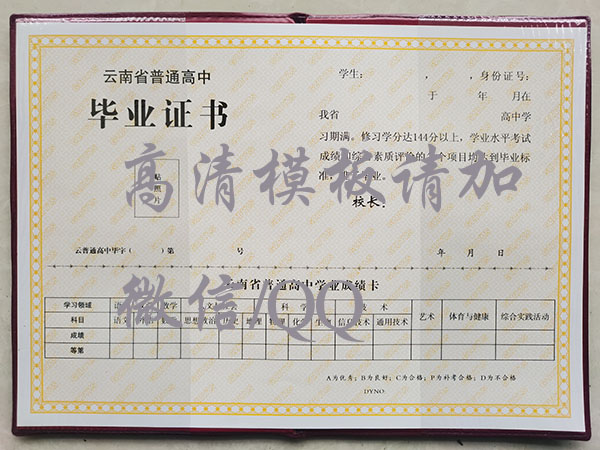 云南省普通高中
毕业证书
贴
照
片
云普通高中毕字（ ）第 号
学生： ， ，身份证号：
于 年 月在
我省 高中学
习期满。修习学分达144分以上，学业水平考试
成绩和综合素质评价的各个项目均达到毕业标
准，准予毕业。
校长：
年 月 日
高清模板请加
微信/QQ
云南省普通高中学业成绩卡
学习领域 数学 科 学 技 术 艺术 体育与健康 综合实践活动
科目 语文 思想政治 历史 地理 物理 化学 生物 信息技术 通用技术
成绩
等第
A为优秀；B为良好；C为合格；P为补考合格；D为不合格
DYNO.